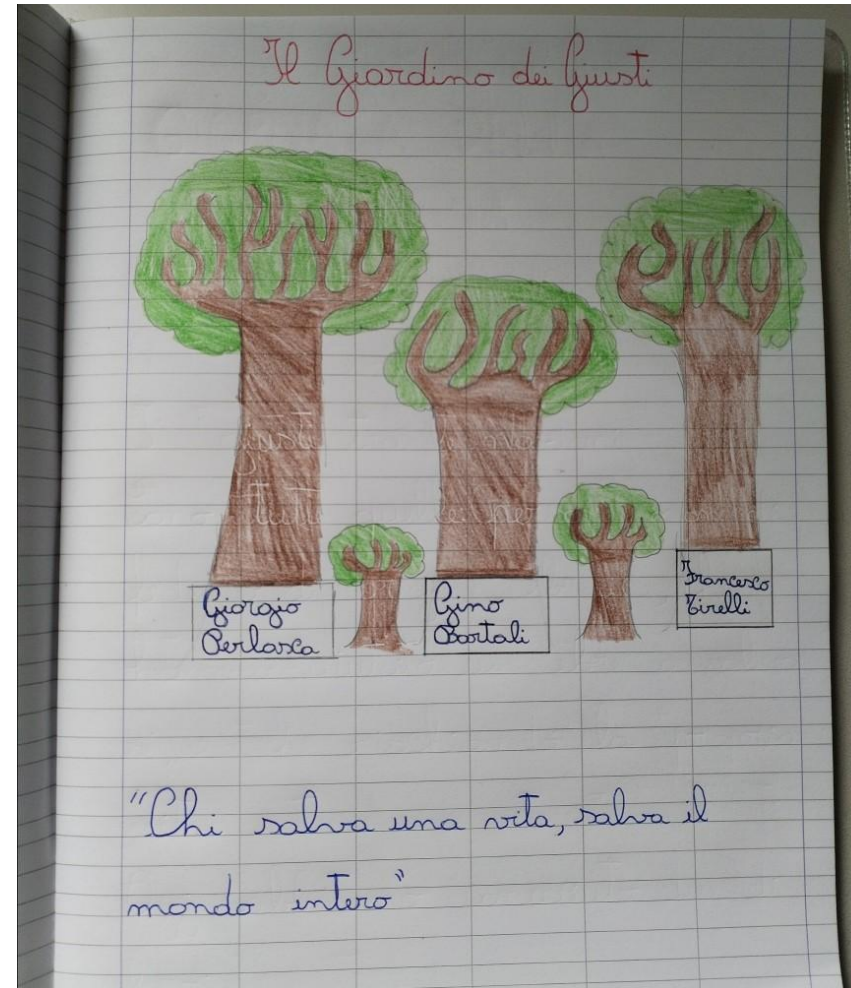 Il Giardino dei Giusti
Giorgio
Perlasca
Gino
Bartali
Francesco
Tirelli
"Chi salva una vita, salva il
mondo intero"